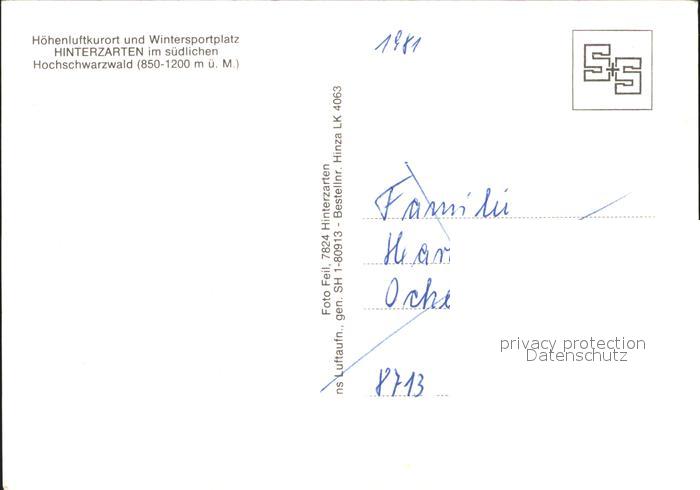 Höhenluftkurort und Wintersportplatz
HINTERZARTEN im südlichen
Hochschwarzwald (850-1200 m ü. M.)
1981
S+S
Foto Feil, 7824 Hinterzarten
ns Luftaufn., gen. SH 1-80913 - Bestellnr. Hinza LK 4063
Familie
privacy protection
Datenschutz
8713